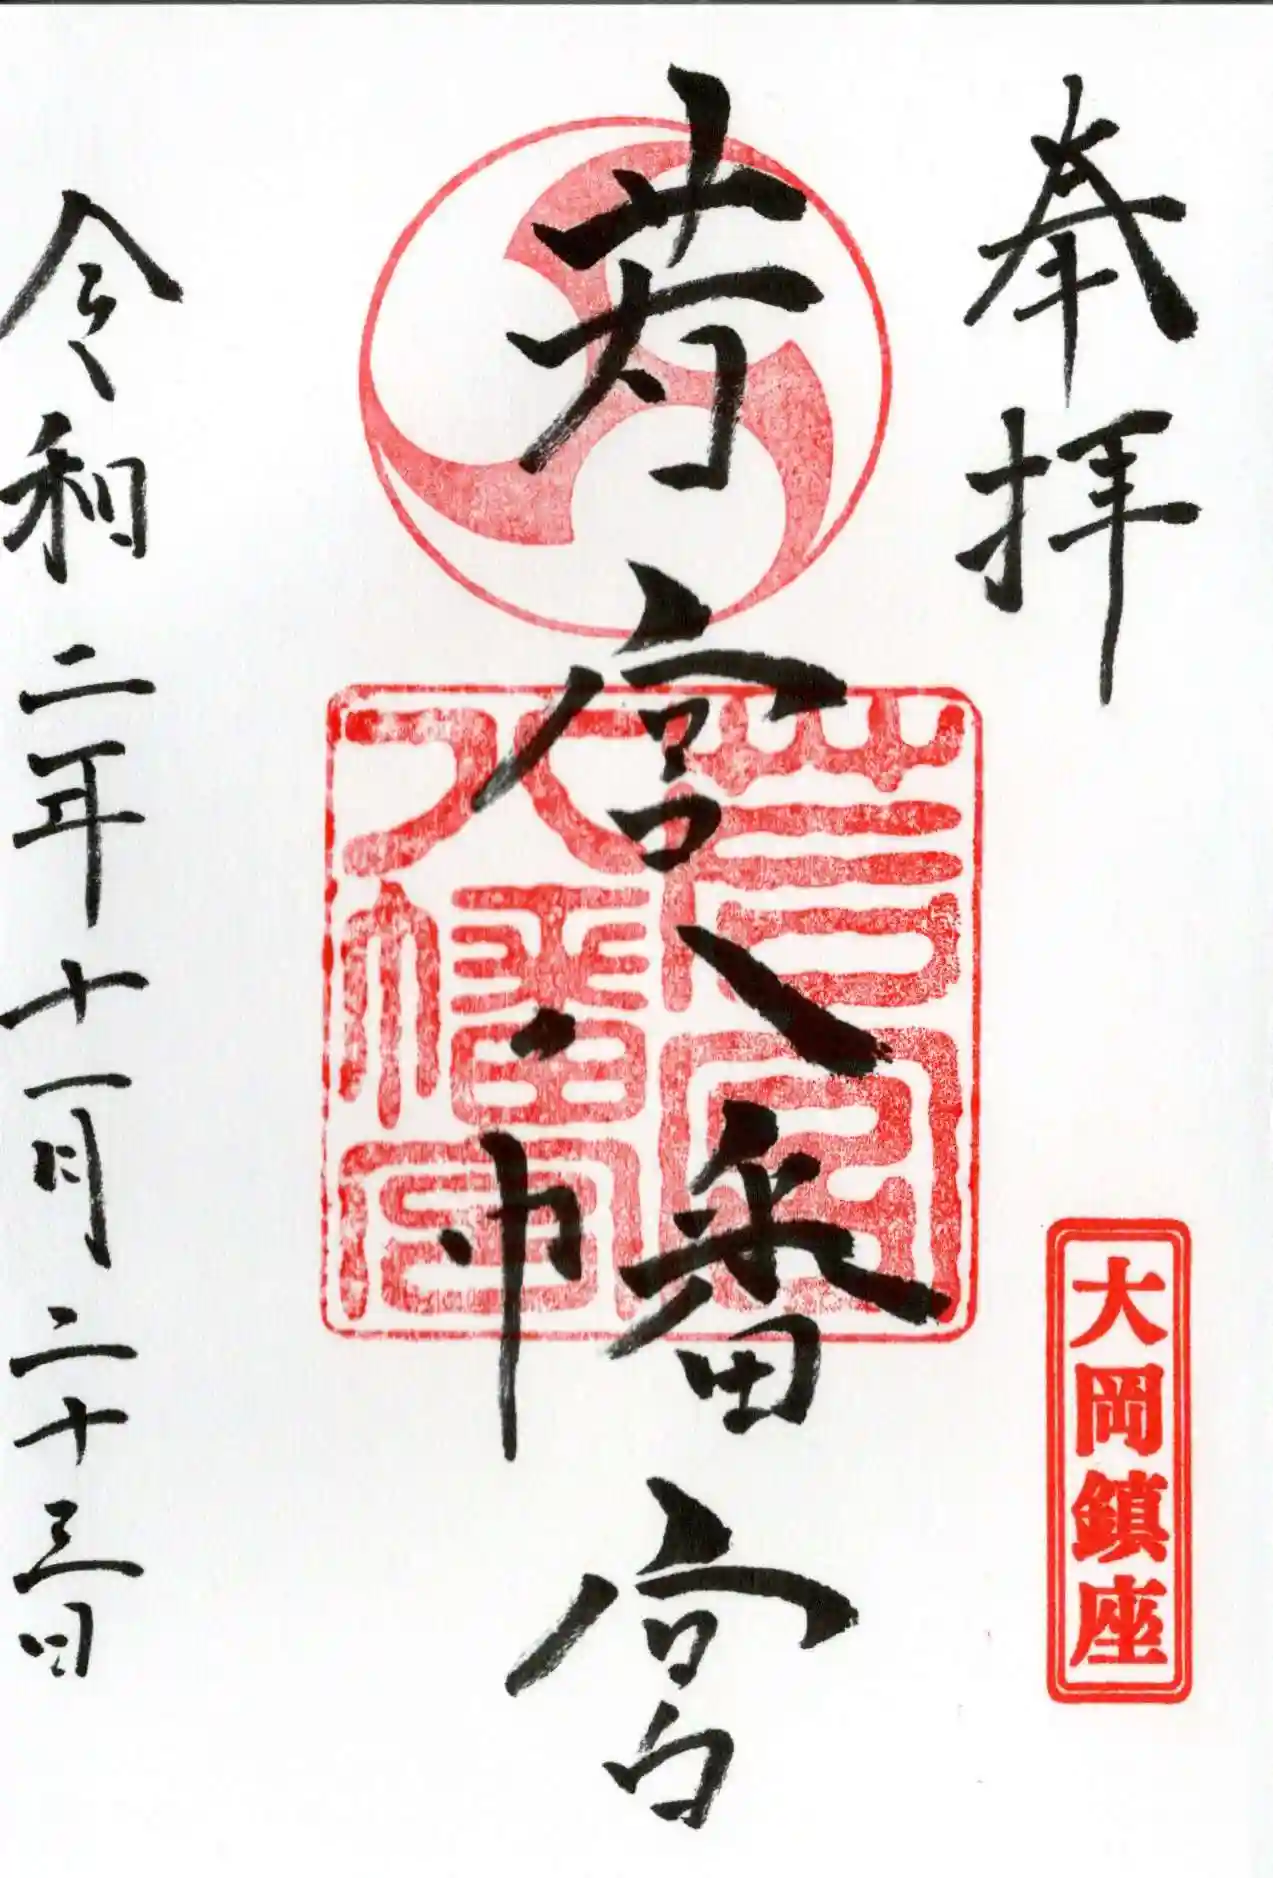 奉拝
大岡鎮座
若宮八幡宮
若宮
八幡宮
令和二年十一月二十三日